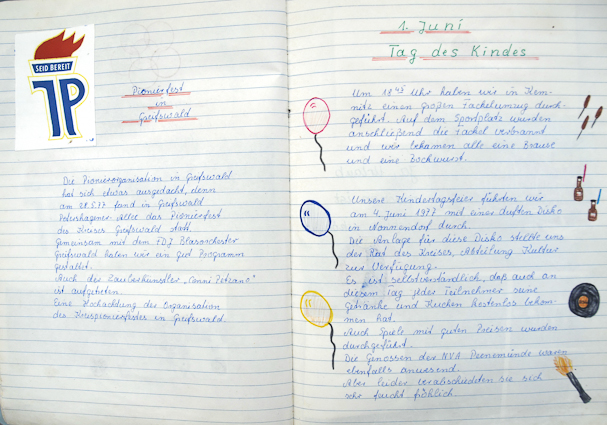 SEID BEREIT
JP
Pionierfest
in
Greifswald
Die Pionierorganisation in Greifswald
hat sich etwas ausgedacht, denn
am 28.5.77 fand in Greifswald
Petershagener Allee das Pionierfest
des Kreises Greifswald statt.
Gemeinsam mit dem FDJ Blasorchester
Greifswald haben wir ein gut Programm
gestaltet.
Auch der Zauberkünstler "Conni
ist aufgetreten.
Eine Hochachtung der Organisation
des Kreispionierfestes in Greifswald.
1. Juni
Tag des Kindes
Um Uhr haben wir in Kem-
nitz einen großen Fackelumzug durch-
geführt. Auf dem Sportplatz wurden
anschließend die Fackel verbrannt
und wir bekamen alle eine Brause
und eine Bockwurst.
Unsere Kindertagsfeier führten wir
am 4. Juni 1977 mit einer duften Disko
in Nonnendorf durch.
Die Anlage für diese Disko stellte uns
der Rat des Kreises, Abteilung Kultur
zur Verfügung.
Es ist selbstverständlich, daß auch an
diesem Tag jeder Teilnehmer seine
Getränke und Kuchen kostenlos bekom-
men hat.
Auch Spiele mit guten Preisen wurden
durchgeführt.
Die Genossen der NVA Peenemünde waren
ebenfalls anwesend.
Aber leider verabschiedeten sie sich
sehr feucht fröhlich.